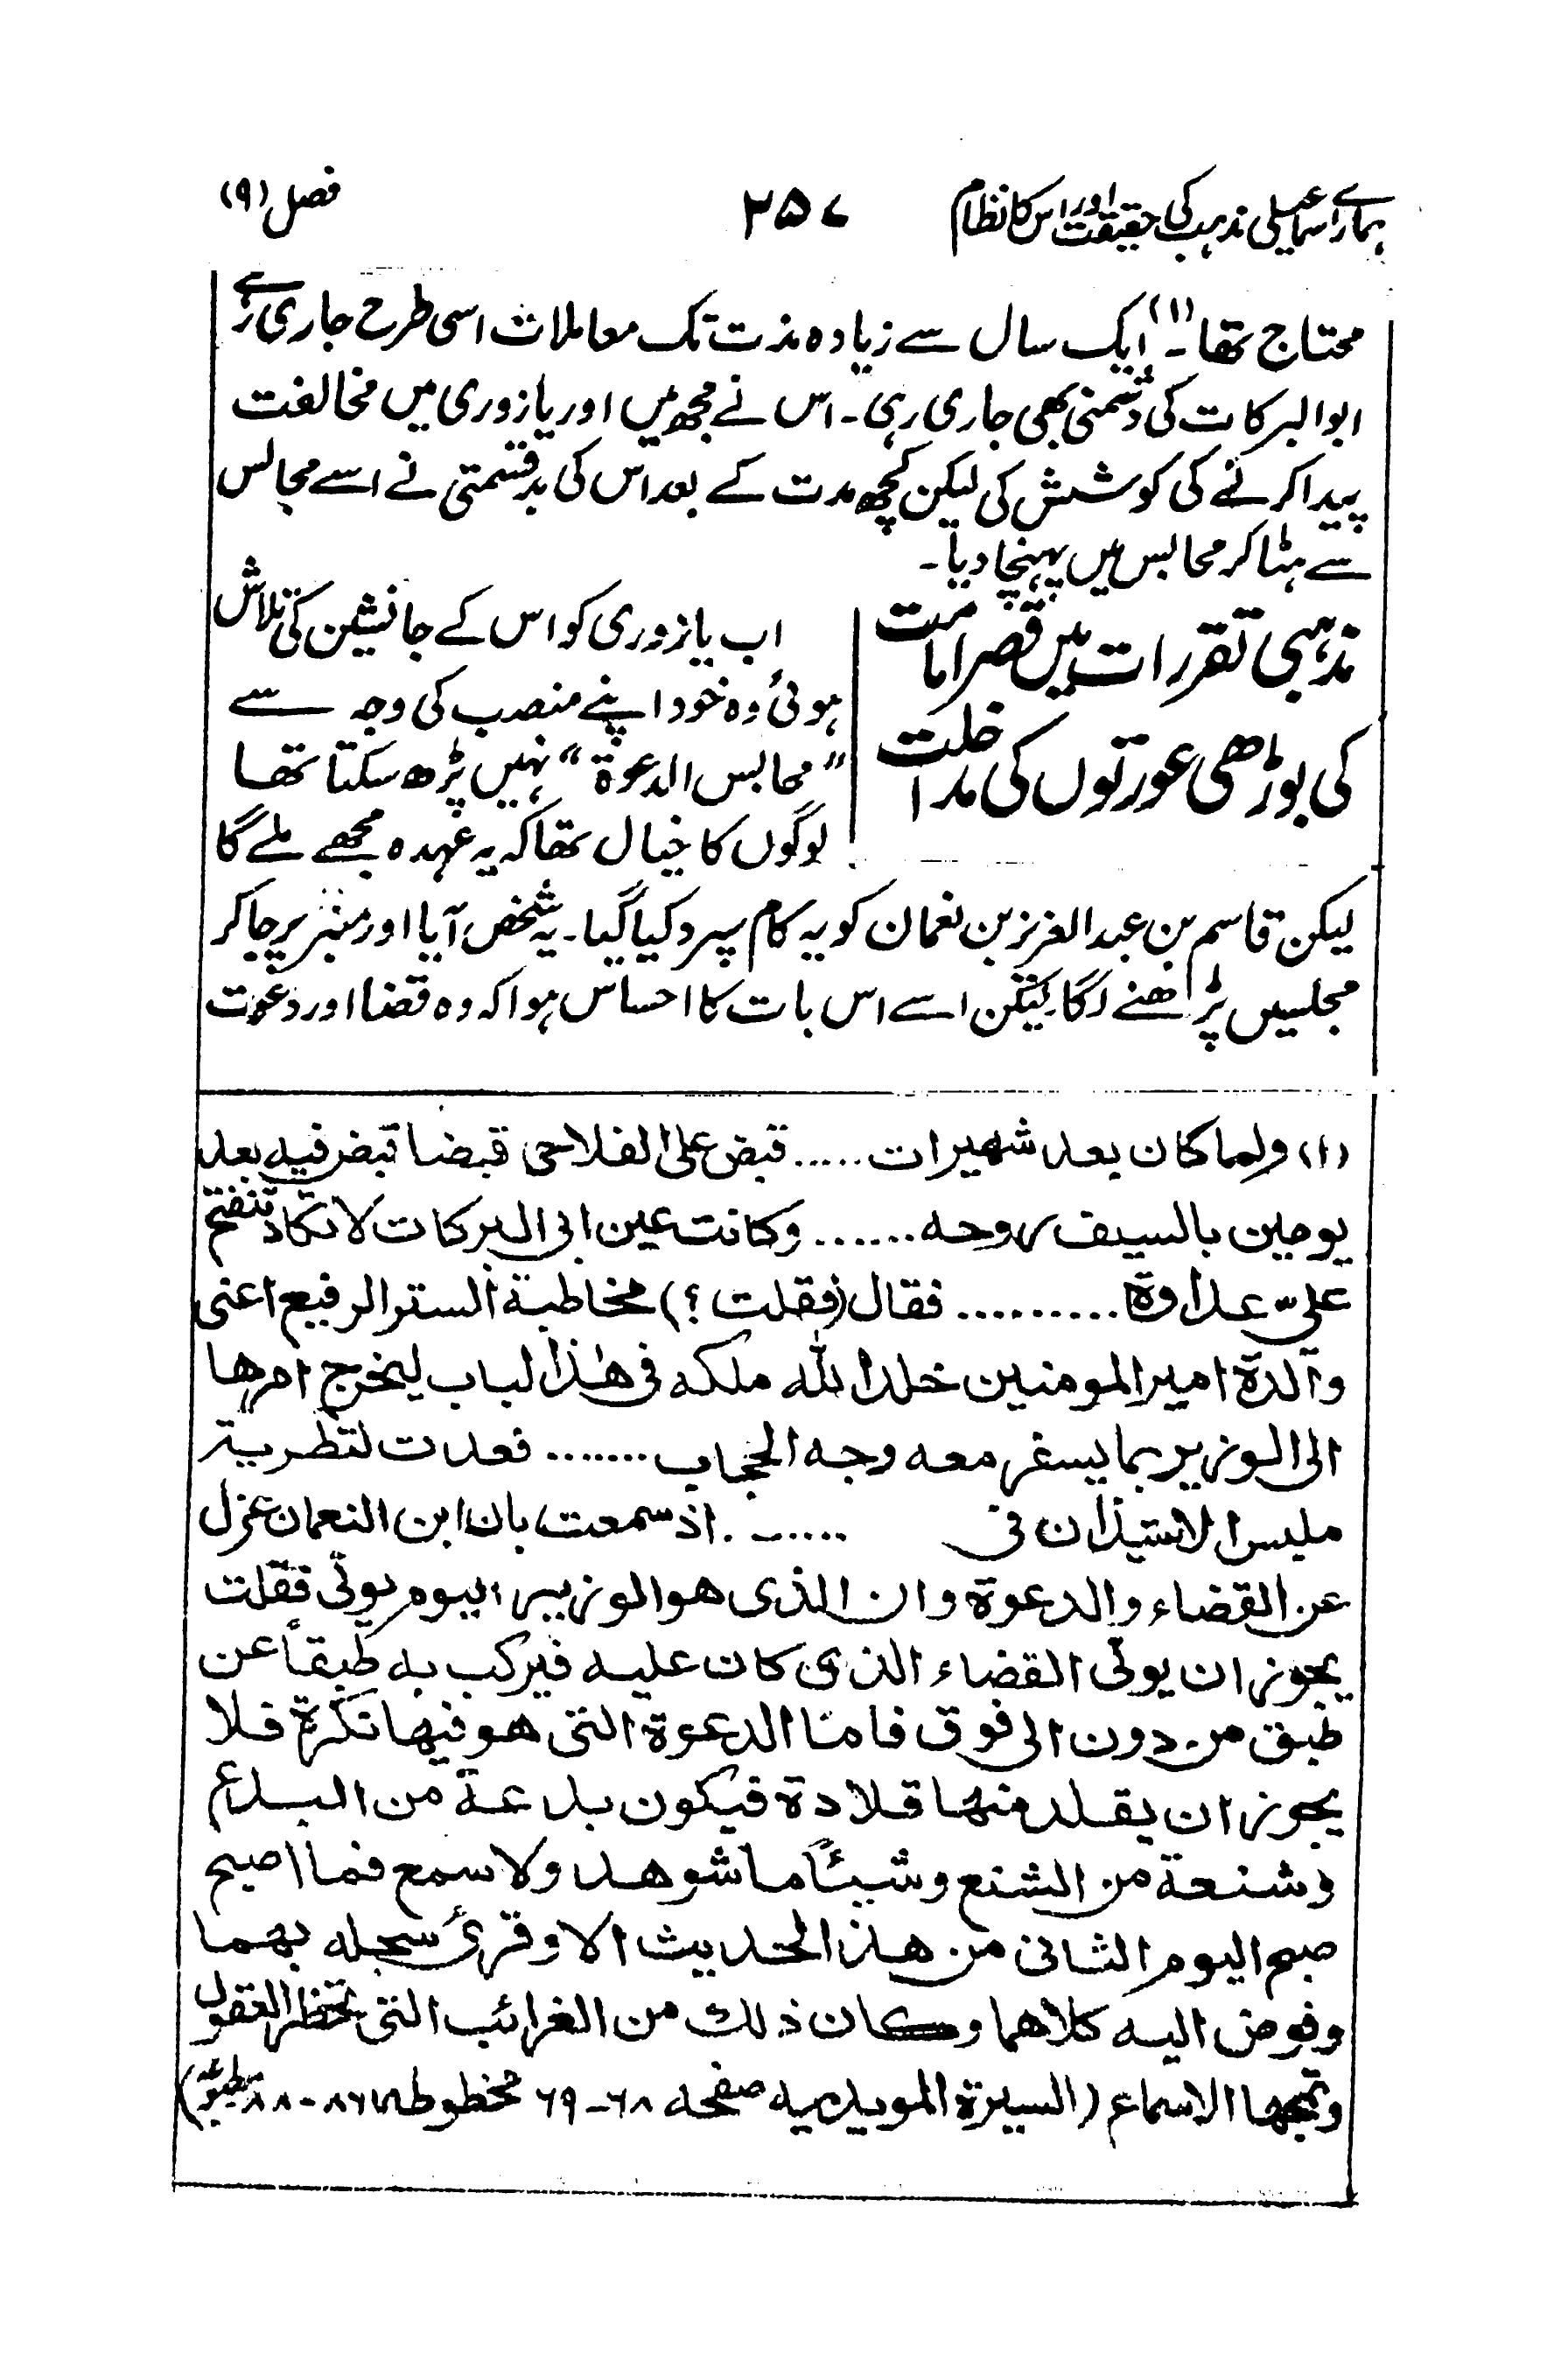 ہمارے اسماعیلی مذہب کی حقیقت اور اس کا نظام ۳۵۷ فصل (۹)
محتاج تھا۔(۱) ایک سال سے زیادہ مدت تک معاملات اسی طرح جاری رہے
ابوالبرکات کی دشمنی بھی جاری رہی۔ اس نے مجھ میں اور یازوری میں مخالفت
پیدا کرنے کی کوشش کی لیکن کچھ مدت کے بعد اس کی بدقسمتی نے اسے مجالس
سے ہٹا کر محابس میں پہنچا دیا۔
مذہبی تقررات میں قصر امامت
کی بوڑھی عورتوں کی مداخلت
اب یازوری کو اس کے جانشین کی تلاش
ہوئی وہ خود اپنے منصب کی وجہ سے
"محابس الدعوۃ" نہیں پڑھ سکتا تھا
لوگوں کا خیال تھا کہ یہ عہدہ مجھے ملے گا
لیکن قاسم بن عبدالعزیز بن نعمان کو یہ کام سپرد کیا گیا۔ یہ شخص آیا اور منبر پر جا کر
مجلسیں پڑھنے لگا لیکن اسے اس بات کا احساس ہوا کہ وہ قضا اور دعوت
(۱) ولما كان بعد شهيرات ..... قبض على الفلاحى قبضا قبض فيه بعد
يومين بالسيف روحه ...... وكانت عين ابى البركات لا تكاد تنفتح
علىّ عداوة ......... فقال (فقلت ؟) مخاطبة الستر الرفيع اعنى
والدة امير المومنين خلد الله ملكه فى هٰذا الباب ليخرج امرها
الى الوزير بما يسفر معه وجه الحجاب ....... فعدت لتطرية
الاستيذان فى ...... اذ سمعت بان ابن النعمان عزل
عن القضاء والدعوة وان الذى هو الوزير اليوم يولّى فقلت
يجوز ان يولّى القضاء الذى كان عليه فيركب به طبقاً عن
طبق من دون الى فوق فاما الدعوة التى هو فيها نكرة فلا
يجوز ان يقلد منها قلادة فيكون بدعة من البدع
وشنعة من الشنع وشيئاً ما شوهد ولا سمع فما اصبح
صبح اليوم الثانى من هذا الحديث الا وقرئ سجله بهما
وفوض اليه كلاهما وكان ذلك من الغرائب التى العقول
وتمجها الاسماع (السيرة المويديه صفحه ۶۸-۶۹ مخطوطه ۸۶-۸۸